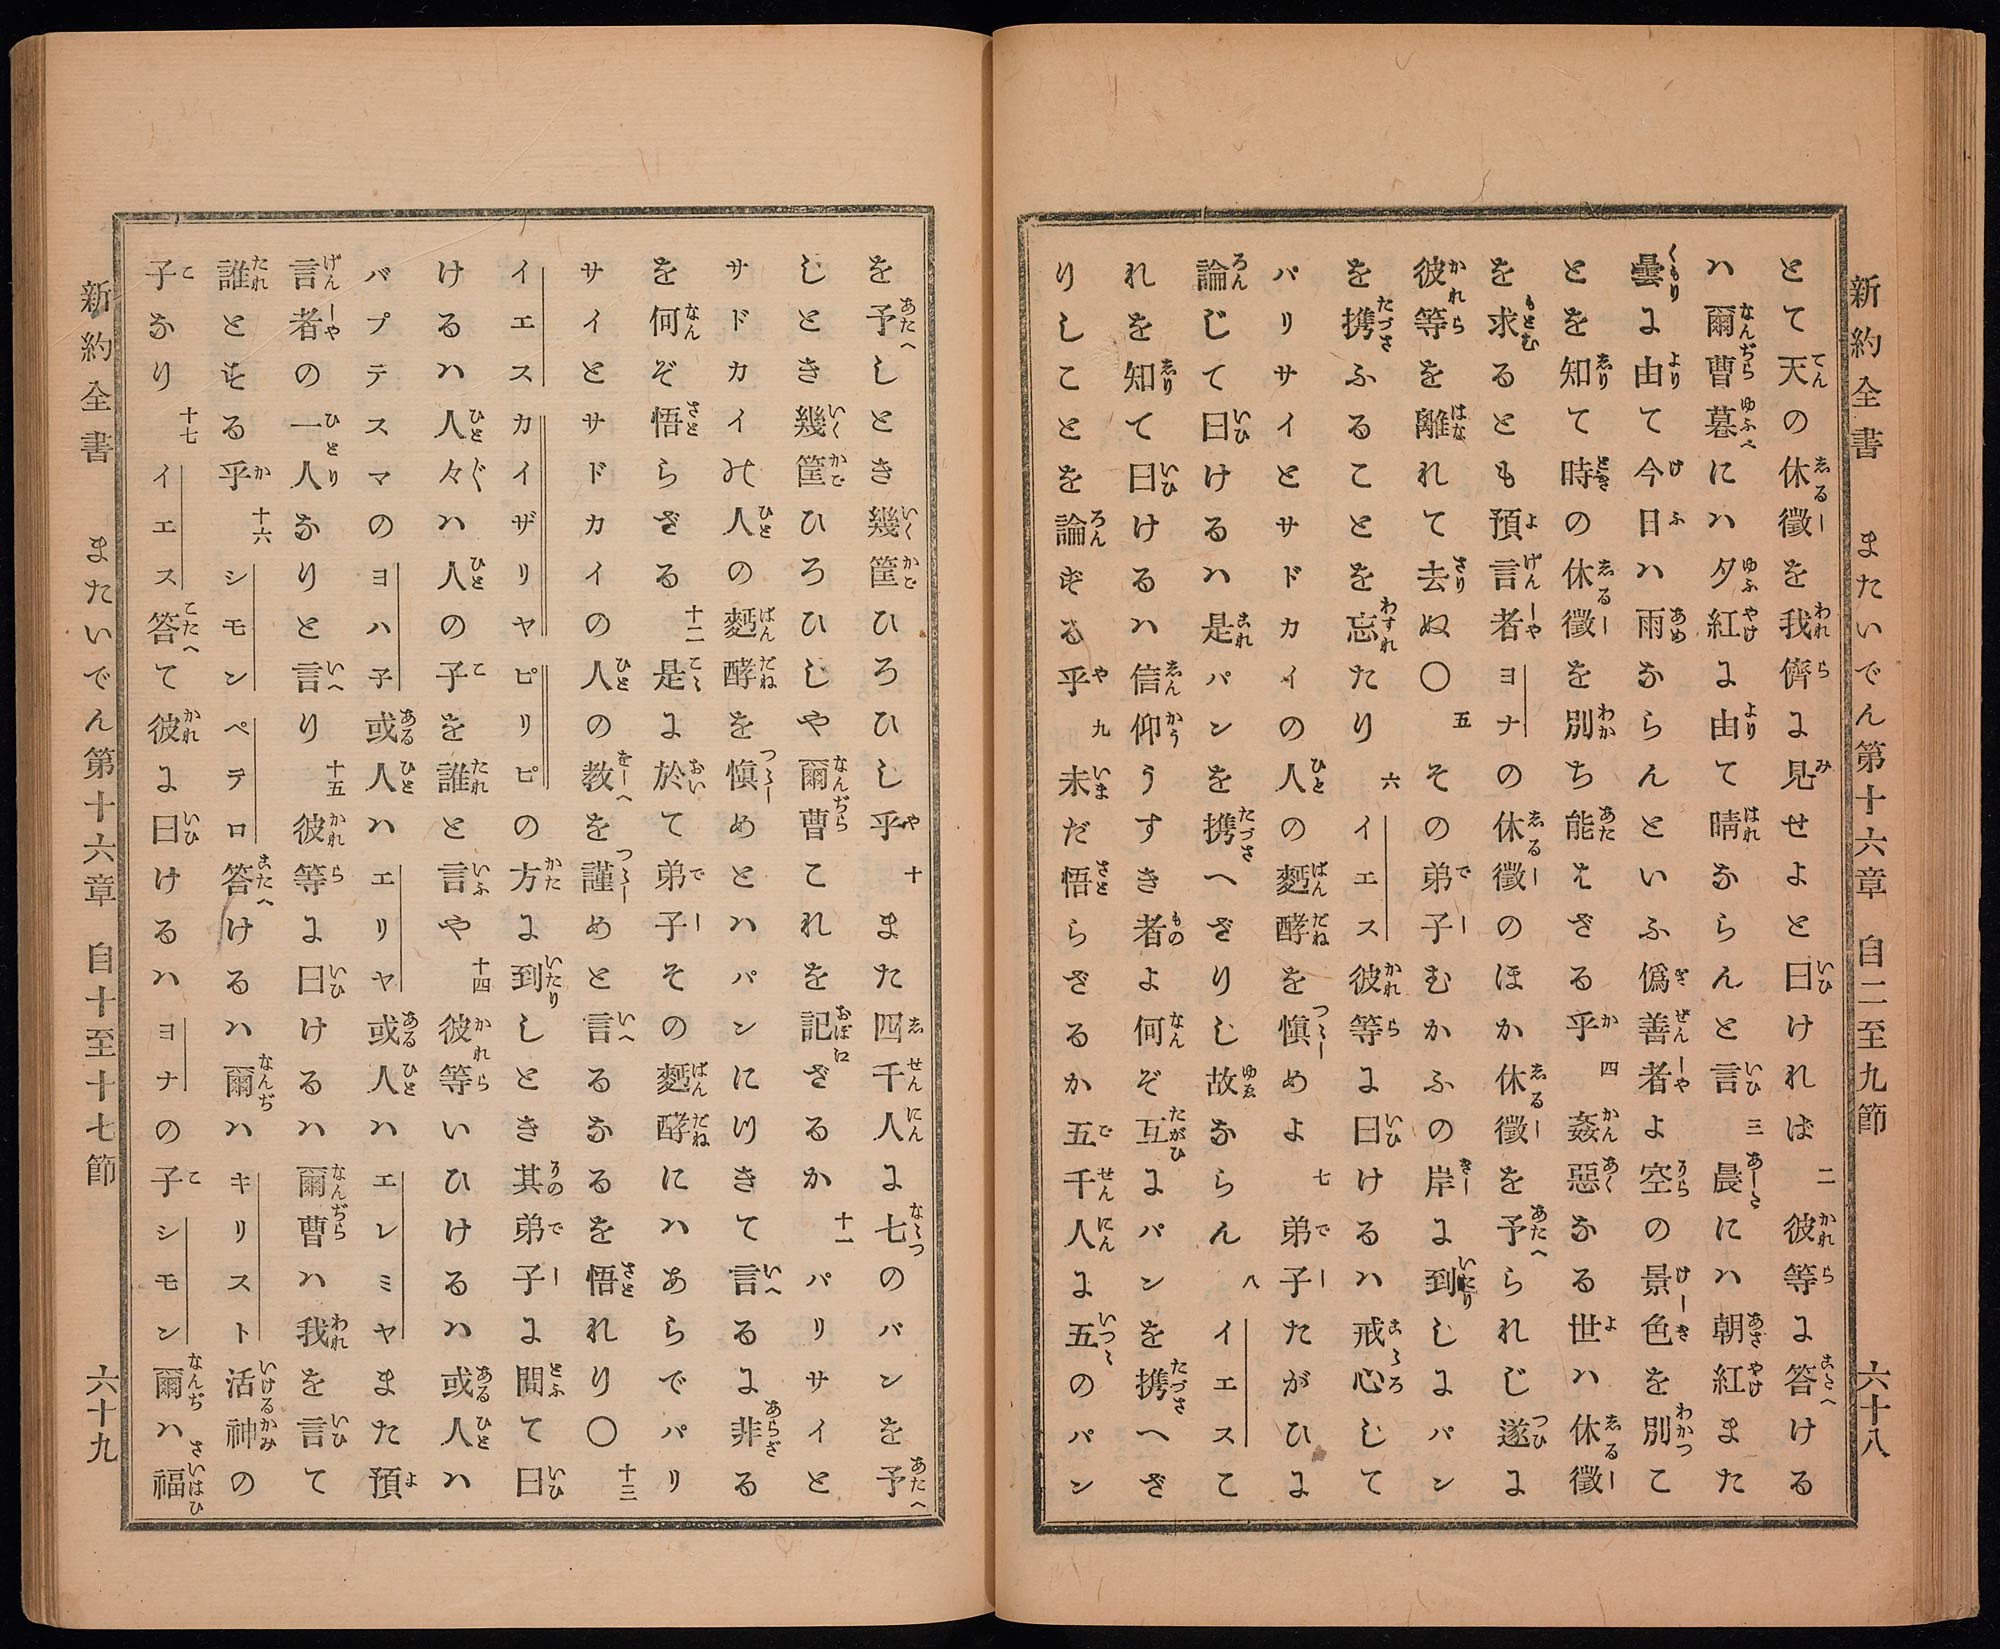 新約全書　またいでん第十六章　自二至九節　六十八
とて天の休徵を我儕に見せよと曰ければ 二 彼等に答ける
ハ爾曹暮にハ夕紅に由て晴ならんと言 三 晨にハ朝紅また
曇に由て今日ハ雨ならんといふ僞善者よ空の景色を別こ
とを知て時の休徵を別ち能はざる乎 四 姦惡なる世ハ休徵
を求るとも預言者ヨナの休徵のほか休徵を予られじ遂に
彼等を離れて去ぬ〇 五 その弟子むかふの岸に到しにパン
を携ふることを忘たり 六 イエス彼等に曰けるハ戒心して
パリサイとサドカイの人の麪酵を愼めよ 七 弟子たがひに
論じて曰けるハ是パンを携へざりし故ならん 八 イエスこ
れを知て曰けるハ信仰うすき者よ何ぞ互にパンを携へざ
りしことを論ずる乎 九 未だ悟らざるか五千人に五のパン
を予しとき幾筐ひろひし乎 十 また四千人に七のパンを予
しとき幾筐ひろひしや爾曹これを記ざるか 十一 パリサイと
サドカイの人の麪酵を愼めとハパンにつきて言るに非る
を何ぞ悟らざる 十二 是に於て弟子その麪酵にハあらでパリ
サイとサドカイの人の教を謹めと言るなるを悟れり〇 十三
イエスカイザリヤピリピの方に到しとき其弟子に問て曰
けるハ人々ハ人の子を誰と言や 十四 彼等いひけるハ或人ハ
バプテスマのヨハ子或人ハエリヤ或人ハエレミヤまた預
言者の一人なりと言り 十五 彼等に曰けるハ爾曹ハ我を言て
誰とする乎 十六 シモンペテロ答けるハ爾ハキリスト活神の
子なり 十七 イエス答て彼に曰けるハヨナの子シモン爾ハ福
新約全書　またいでん第十六章　自十至十七節　六十九